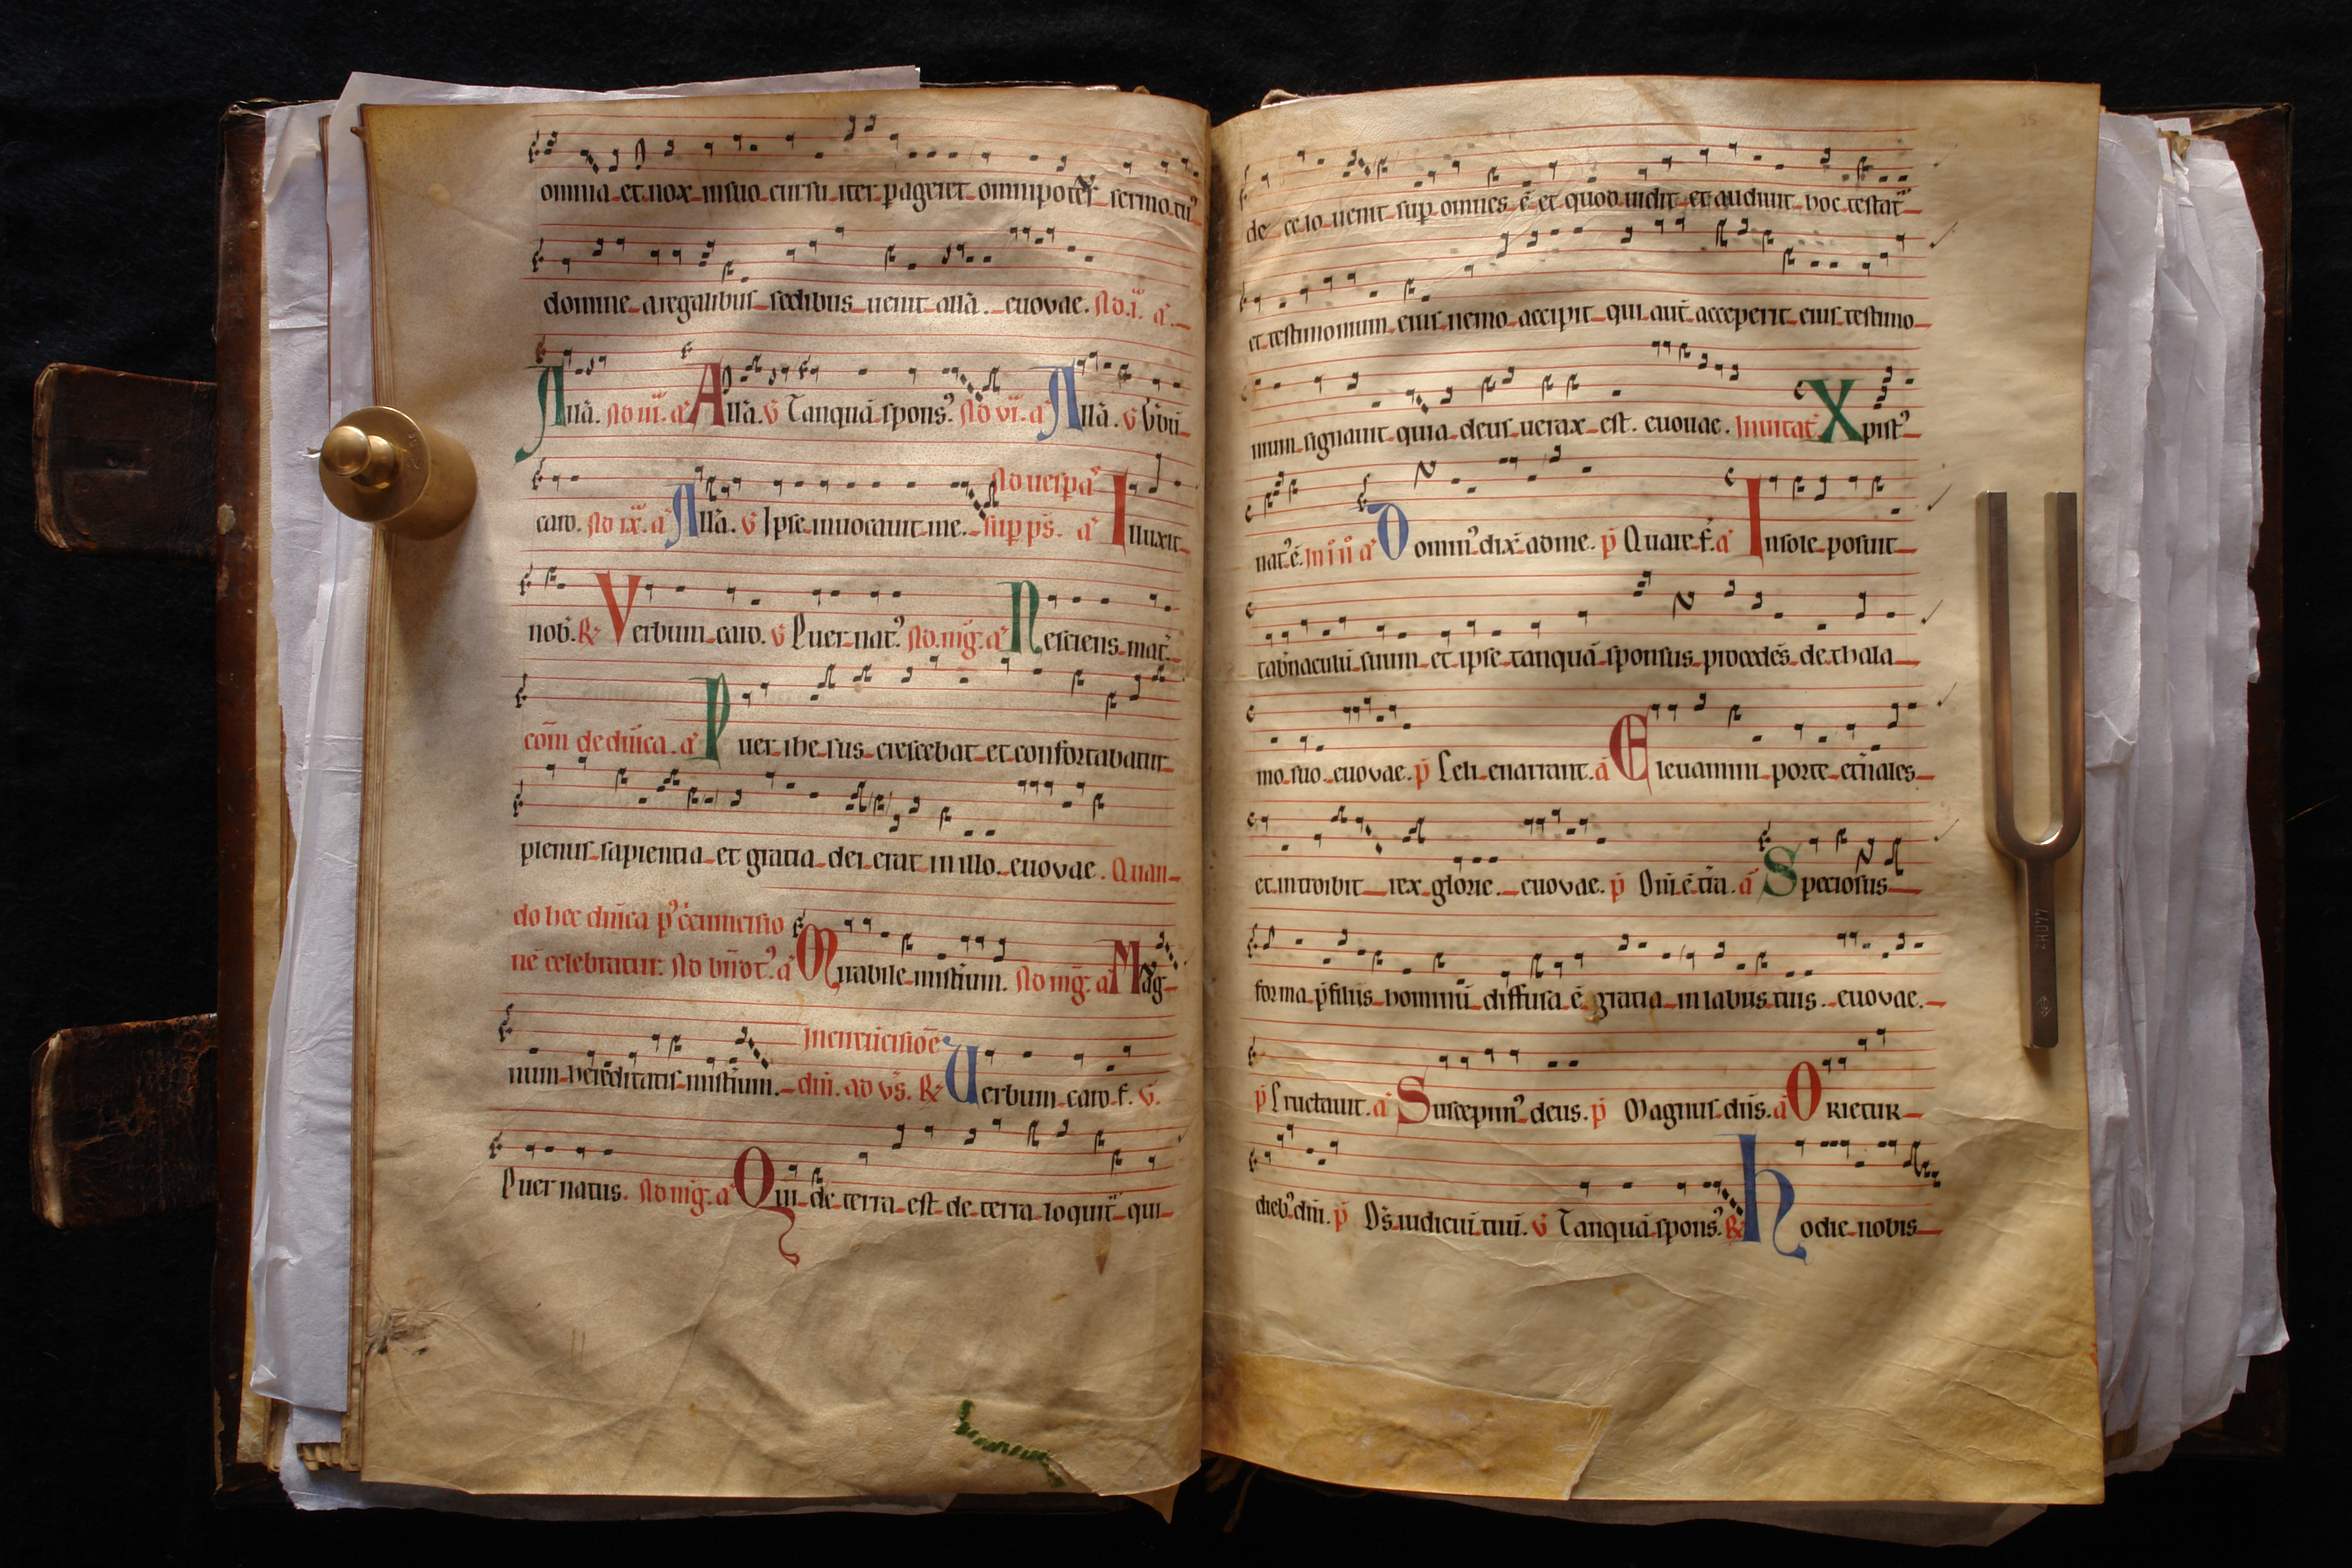 omnia et nox in suo cursu iter pageret omnipotēs sermo tu᾽
domine a regalibus sedibus uenit allā. euovae. Ad .i. a᾽
Allā. Ad .iii. a᾽ Allā. v̄ Tanquā spons᾽ Ad vi. a᾽ Allā. v̄ Vbū
caro. Ad ix. a᾽ Allā. v̄ Ipse inuocauit me. sup ps̄. Ad uesp̄ a᾽ Illuxit
nob᾽. R̷ Verbum caro. v̄ Puer nat᾽ Ad mḡ. a᾽ Nesciens mat᾽
com̄ de dn̄ica. a᾽ Puer ihesus crescebat et confortabatur
plenus sapientia et gratia dei erat in illo. euovae. Quan
do hec dn̄ica p᾽
ne celebratur. Ad a᾽ Mirabile mistium. Ad mḡ. a᾽ Mag
num hereditatis mistium. dn̄i. ad vs̄. R̷ Uerbum caro. f. v̄.
Puer natus. Ad mḡ. a᾽ Qui de terra est de terra loquit᾽ qui
35
de celo uenit sup omnes ē et quod uidit et audiuit hoc testat᾽
et testimonium eius nemo accipit qui aut̄ acceperit eius testimo
nium signauit quia deus uerax est. euouae. Inuitat᾽ Xpist᾽
nat᾽ ē. In i n̄ a᾽ Domin᾽ dix̄ ad me. p̄ Quare f. a᾽ In sole posuit
tab̄naculū suum et ipse tanquā sponsus procedēs de thala
mo suo. euovae. p̄ Celi enarrant. ā Eleuamini porte et̄nales
et introibit rex glorie. euovae. p̄ Dn̄i ē t̄ra. ā Speciosus
forma p̄ filiis hominū diffusa ē gratia in labiis tuis. euovae.
p̄ Eructauit. a᾽ Suscepim᾽ deus. p̄ Magnus dn̄s. ā ORIETUR
dieb᾽ dn̄i. p̄ Ds̄ iudiciū tuū. v̄ Tanquā spons᾽ R̷ hodie nobis
440HZ